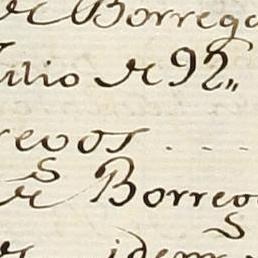 de Borrego
Julio de 92,,
regos . . . .
de Borreg
idem